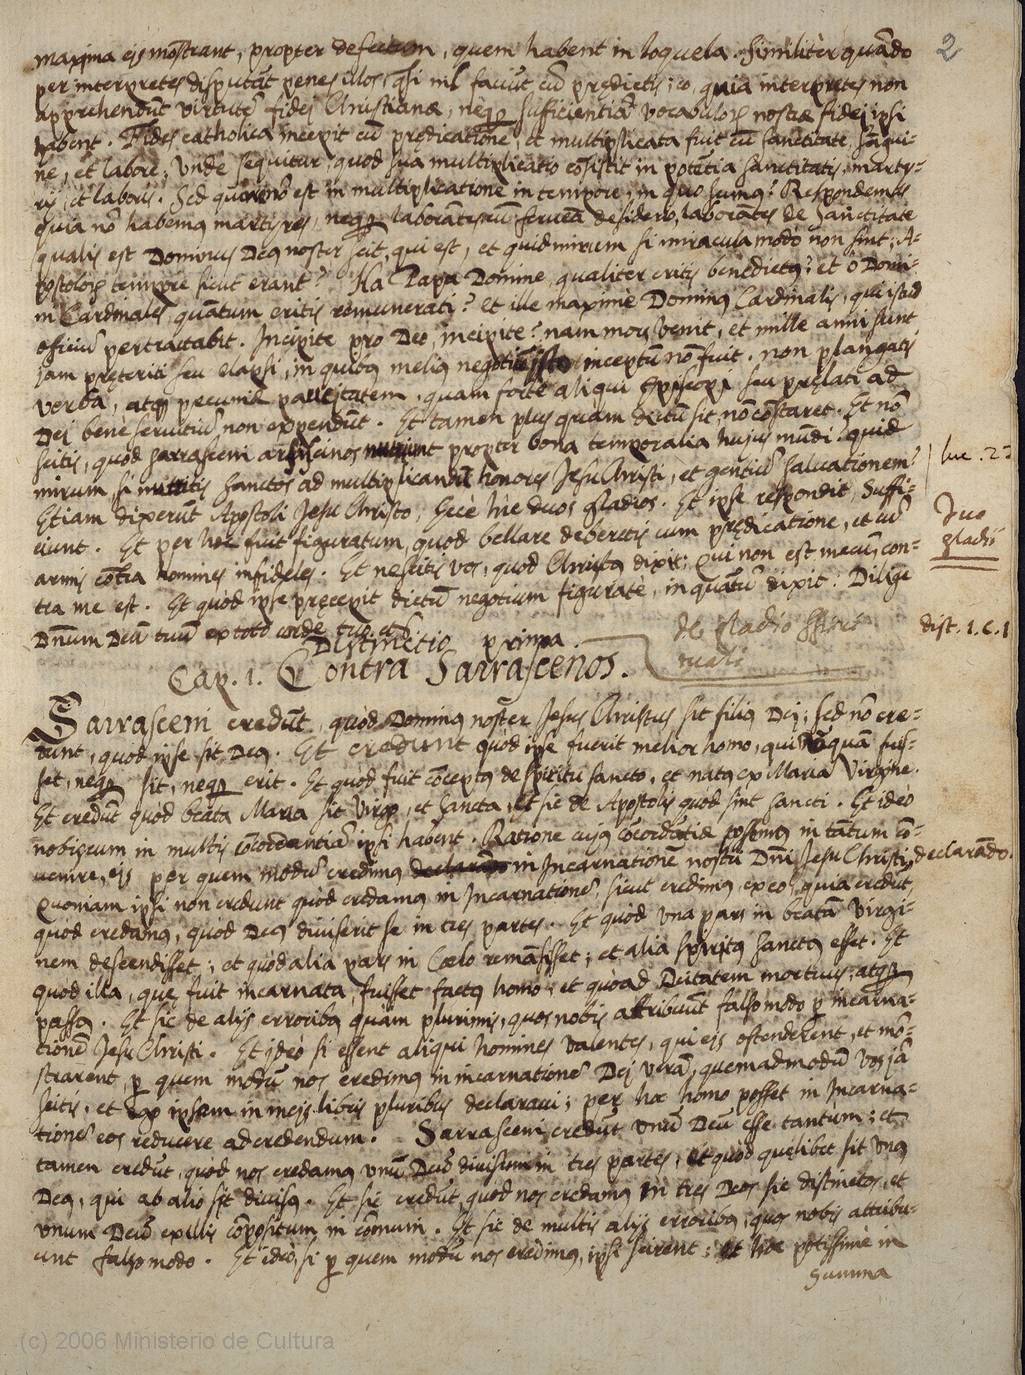 2
maxima ejs mõstrant, propter defectum, quem habent in loquela. Similitèr quãdo
per interpretes disputãt penes illos, q̃si nil faciũt cũ predictis; eo, quia interpretes non
apprehendũt virtutẽ fidej Christianæ, neq; sufficientiã vocabulor̃ nostræ fidej ipsi
habent. Fides catholica incepit cũ predicatione, et multiplicata fuit cũ sanctitate, sãgui-
ne, et labore; Unde sequitur, quod sua multiplicatio cõsistit in potẽtia sanctitatis, marty-
rij, et laboris. Sed quomõ est in multiplicatione in tempore, in quo sumus? Respondemus
quia nõ habemus martires, neq; laborãtes cũ ferventi desiderio, laborãtes de sanctitate
qualis est Dominus Deus noster scit, qui est, et quid mirum si miracula modo non sint, A-
postolor̃ tempore sicut erant? Ha Papa Domine, qualiter eritis benedictus? et ô Domi-
ni Cardinales, quãtum eritis remunerati? et ille maximè Dominus Cardinalis, qui istud
officiũ pertractabit. Incipite pro Deo, incipite? nam mors venit, et mille anni sunt
jam preteriti seu elapsi, in quibus melius negotiũ isto inceptũ nõ fuit. non plangatis
verba, atq; pecuniæ paucitatem, quam fortè aliqui Episcopi seu prelati ad
Dej bene servitiũ non expendũt. Et tamen plus quam dictũ sit nõ cõstaret. Et nõ
scitis, quòd sarrasceni assassinos mittunt propter bona temporalia hujus mũdi? quid
mirum, si mittitis sanctos ad multiplicandũ honores Jesu Christi, et gentiũ salvationem?
luc. 22
Etiam dixerũt Apostoli Jesu Christo, Ecce hìc duos gladios. Et ipse respondit, Suffi-
ciunt. Et per hoc fuit figuratum, quod bellare deberetis cum predicatione, et cũ
Duo
gladii
armis cõtra homines infideles. Et nescitis vos, quod Christus dixit; Qui non est mecũ, con-
tra me est. Et quòd ipse precepit dictũ negotium figuratè, in quãtũ dixit: Dilige
Dñum Deũ tuũ ex toto corde tuo etc̃
de gladio spiri
tuali
dist. 1. C. 1
Distinctio prima.
Cap. 1. Contra Sarrascenos.
Sarrasceni credũt, quòd Dominus noster Jesus Christus sit filius Dej; sed nõ cre-
dunt, quod ipse sit Deus. Et credunt quòd ipse fuerit melior homo, qui nũquã fuis-
set, neq; sit, neq; erit. Et quòd fuit cõceptus de spiritu sancto, et natus ex Maria Virgine.
Et credũt quòd beata Maria sit Virgo, et sancta, et sic de Apostolis quòd sint sancti. Et ideò
nobiscum in multis cõcordantiã ipsi habent. Ratione cujus cõcordãtiæ possemus in tãtum cõ-
venire, ejs per quem modũ credimus in Incarnationẽ nostri Dñi Jesu Christi, declarãdo.
Quoniam ipsi non credunt quòd credamus in Incarnationẽ, sicut credimus ex eo, quia credũt,
quòd credamus, quòd Deus diviserit se in tres partes. Et quòd una pars in beatã Virgi-
nem descendisset; et quòd alia pars in Cœlo remãsisset; et alia spiritus sanctus esset. Et
quòd illa, que fuit incarnata, fuisset factus homo, et quòad Deitatem mortuus, atq;
passus. Et sic de alijs erroribus quam plurimis, quos nobis attribuũt falso modo p incarna-
tionẽ Jesu Christi. Et ideò si essent aliqui homines valentes, qui ejs ostenderẽnt, et mõ-
strarent p quem modũ nos credimus in incarnationẽ Dej verã, quemadmodũ vos jã
scitis, et ego ipsem in mejs libris pluribus declaravi; per hoc homo posset in Incarna-
tionẽ eos reducere ad credendum. Sarrasceni credũt unũ Deũ esse tantum; et
tamen credũt, quòd nos credamus unũ Deũ divisum in tres partes, et quòd quelibet sit unus
Deus, qui ab alio sit divisus. Et sic credũt, quod nos credamus in tres Deos sic distinctos, et
unum Deũ ex illis cõpositum in cõmuni. Et sic de multis alijs erroribus, quos nobis attribu-
unt falso modo. Et ideò, si p quem modũ nos credimus, ipsi scirent; et hoc potissimè in
summa
(c) 2006 Ministerio de Cultura